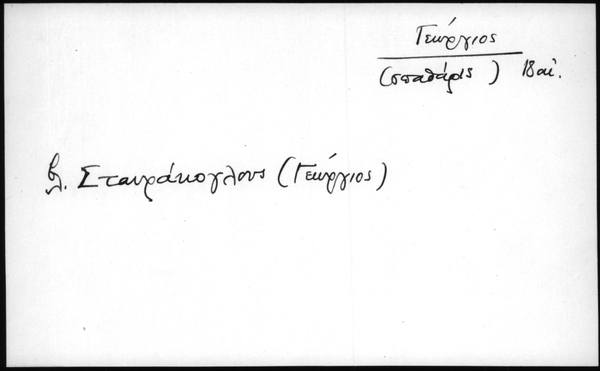 Γεώργιος
(σπαθάρις) 18 αἰ.
βλ. Σταυράκογλους (Γεώργιος)